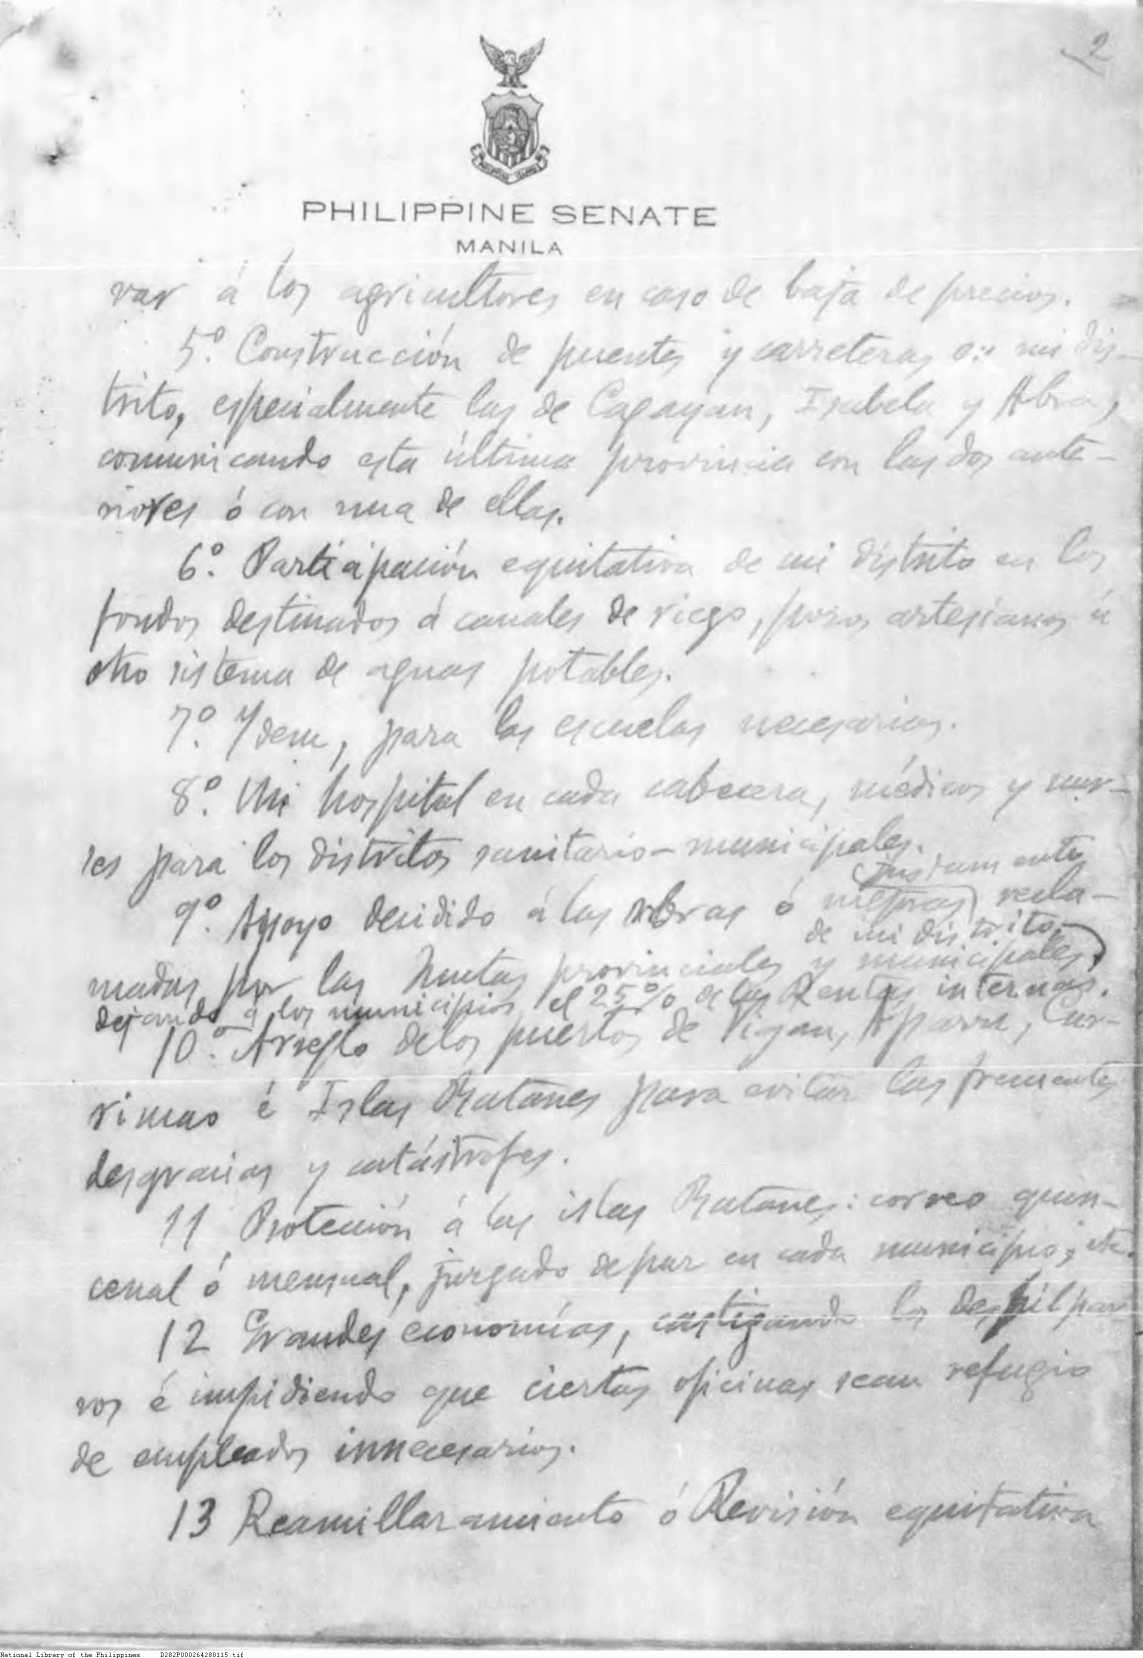 2
PHILIPPINE SENATE
MANILA
var á los agricultores en caso de baja de precios.
5º. Construcción de puentes y carreteras en mi dis-
trito, especialmente las de Cagayan, Isabela y Abra,
comunicando esta última provincia con las dos ante-
riores ó con una de ellas.
6º. Participación equitativa de mi distrito en los
fondos destinados á canales de riego, pozos artesianos ú
otro sistema de aguas potables.
7º. Ydem, para las escuelas necesarias.
8º. Un hospital en cada cabecera, médicos y nur-
ses para los distritos sanitario-municipales.
justamente
9º. Apoyo decidido á las obras ó mejoras recla-
de mi distrito,
madas por las Juntas provinciales y municipales,
dejando á los municipios el 25% de las Rentas internas.
10º. Arreglo de los puertos de Vigan, Aparri, Cur-
rimao é Islas Batanes para evitar las frecuentes
desgracias y catástrofes.
11 Protección á las islas Batanes: correo quin-
cenal ó mensual, juzgado de paz en cada municipio, etc.
12 Grandes economías, castigando los despilfar-
ros é impidiendo que ciertas oficinas sean refugio
de empleados innecesarios.
13 Reamillaramiento ó Revisión equitativa
National Library of the Philippines D282P000264288115.tif